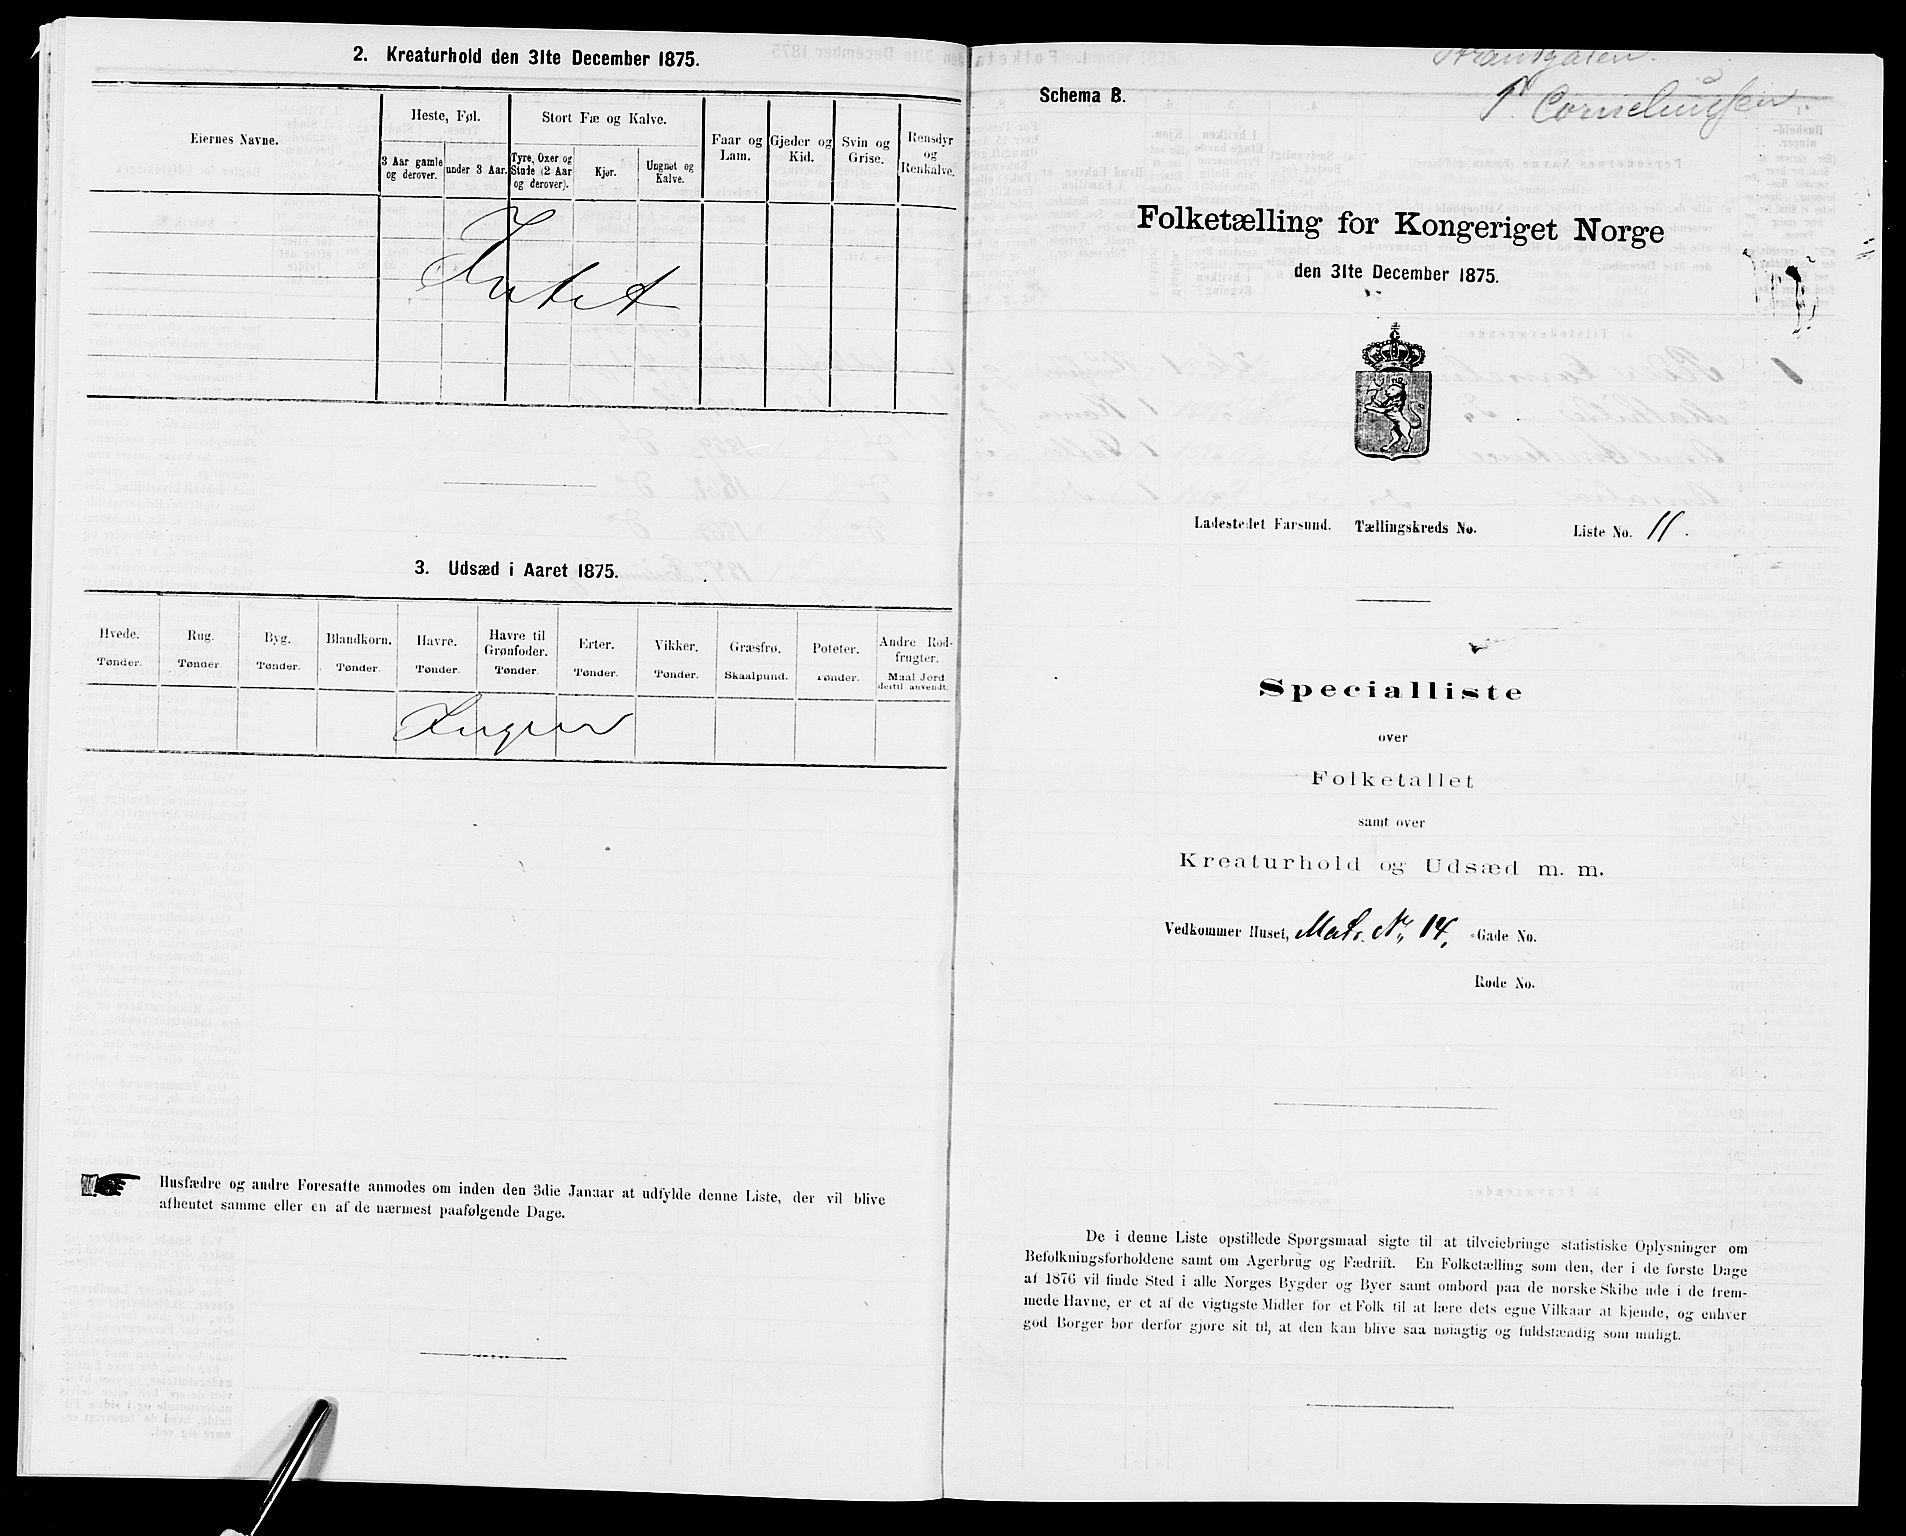 2. Kreaturhold den 31te December 1875.
Eiernes Navne.
Heste, Føl.
Stort Fæ og Kalve.
Faar og
Lam.
Gjeder og
Kid.
Svin og
Grise.
Rensdyr
og
Renkalve.
3 Aar gamle
og derover.
under 3 Aar.
Tyre, Oxer og
Stude (2 Aar
og derover).
Kjør.
Ungnøt og
Kalve.
Intet
3. Udsæd i Aaret 1875.
Hvede.
Tønder.
Rug.
Tønder.
Byg.
Tønder.
Blandkorn.
Tønder.
Havre.
Tønder.
Havre til
Grønfoder.
Tønder.
Erter.
Tønder.
Vikker.
Tønder.
Græsfrø.
Skaalpund.
Poteter.
Tønder.
Andre Rod-
frugter.
Maal Jord
dertil anvendt.
Ingen
Husfædre og andre Foresatte anmodes om inden den 3die Januar at udfylde denne Liste, der vil blive
afhentet samme eller en af de nærmest paafølgende Dage.
Strandgaten.
Schema B.
P. Corneliussen
Folketælling for Kongeriget Norge
den 31te December 1875.
Ladestedet Farsund. Tællingskreds No. Liste No. 11.
Specialliste
over
Folketallet
samt over
Kreaturhold og Udsæd m. m.
Vedkommer Huset, Matr. Nr. 14, -Gade No.
Rode No.
De i denne Liste opstillede Spørgsmaal sigte til at tilveiebringe statistiske Oplysninger om
Befolkningsforholdene samt om Agerbrug og Fædrift. En Folketælling som den, der i de første Dage
af 1876 vil finde Sted i alle Norges Bygder og Byer samt ombord paa de norske Skibe ude i de frem-
mede Havne, er et af de vigtigste Midler for et Folk til at lære dets egne Vilkaar at kjende, og enhver
god Borger bør derfor gjøre sit til, at den kan blive saa nøiagtig og fuldstændig som muligt.